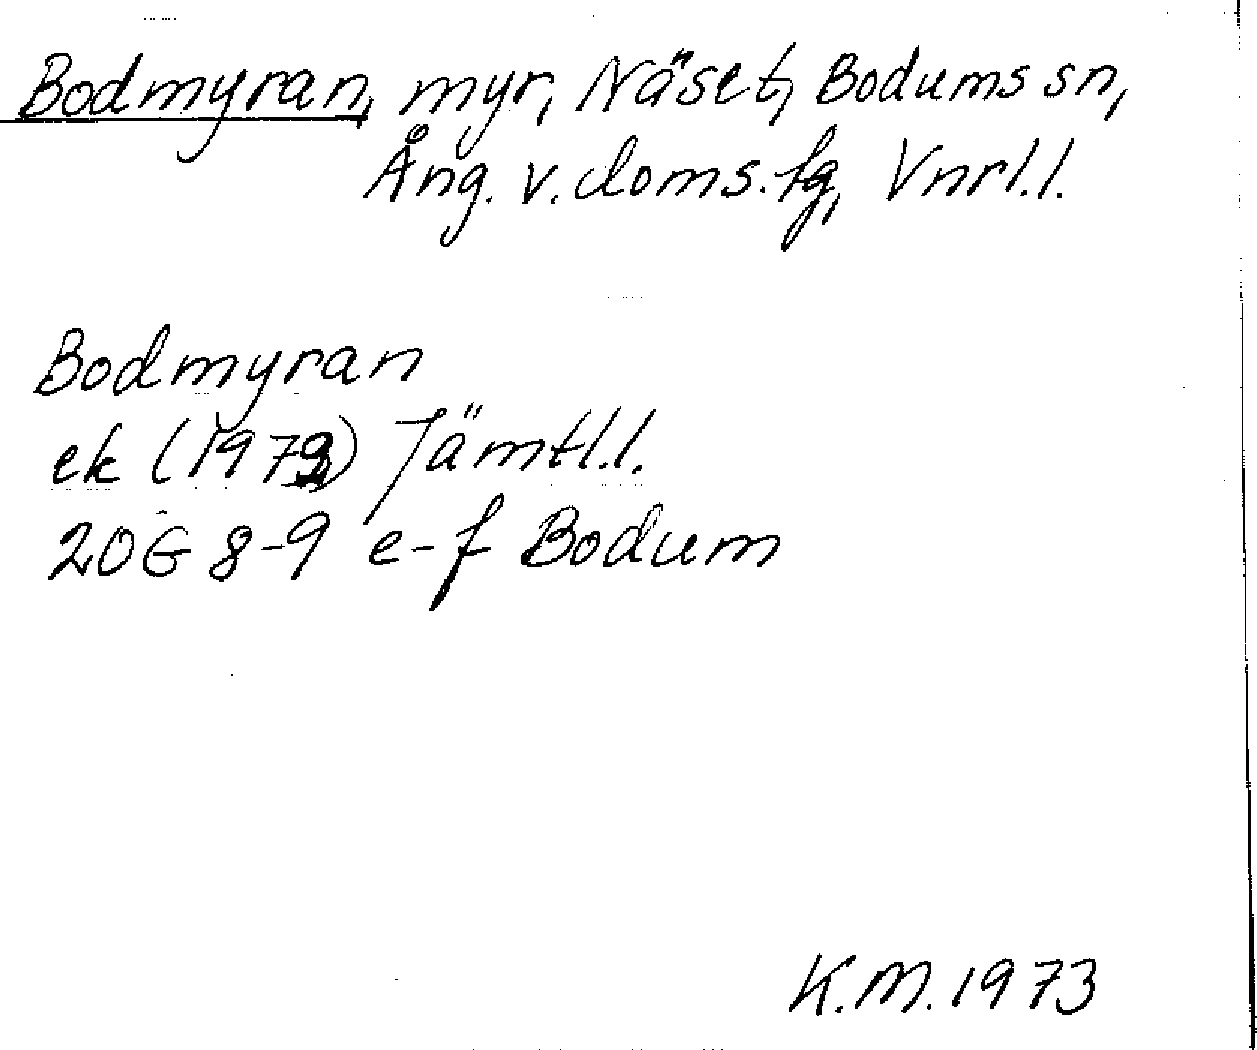 Bodmyran, myr, Näset, Bodums sn,
Ång. v. doms.fg, Vnrl.l.
Bodmyran
ek () Jämtl.l.
20G 8-9 e-f Bodum
K.M. 1973